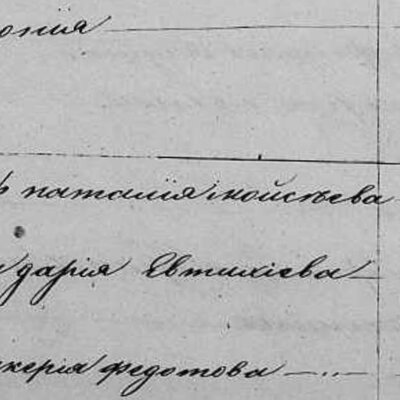 онія
ъ наталія мойсѣева
дарія Евтихіева
керія федотова